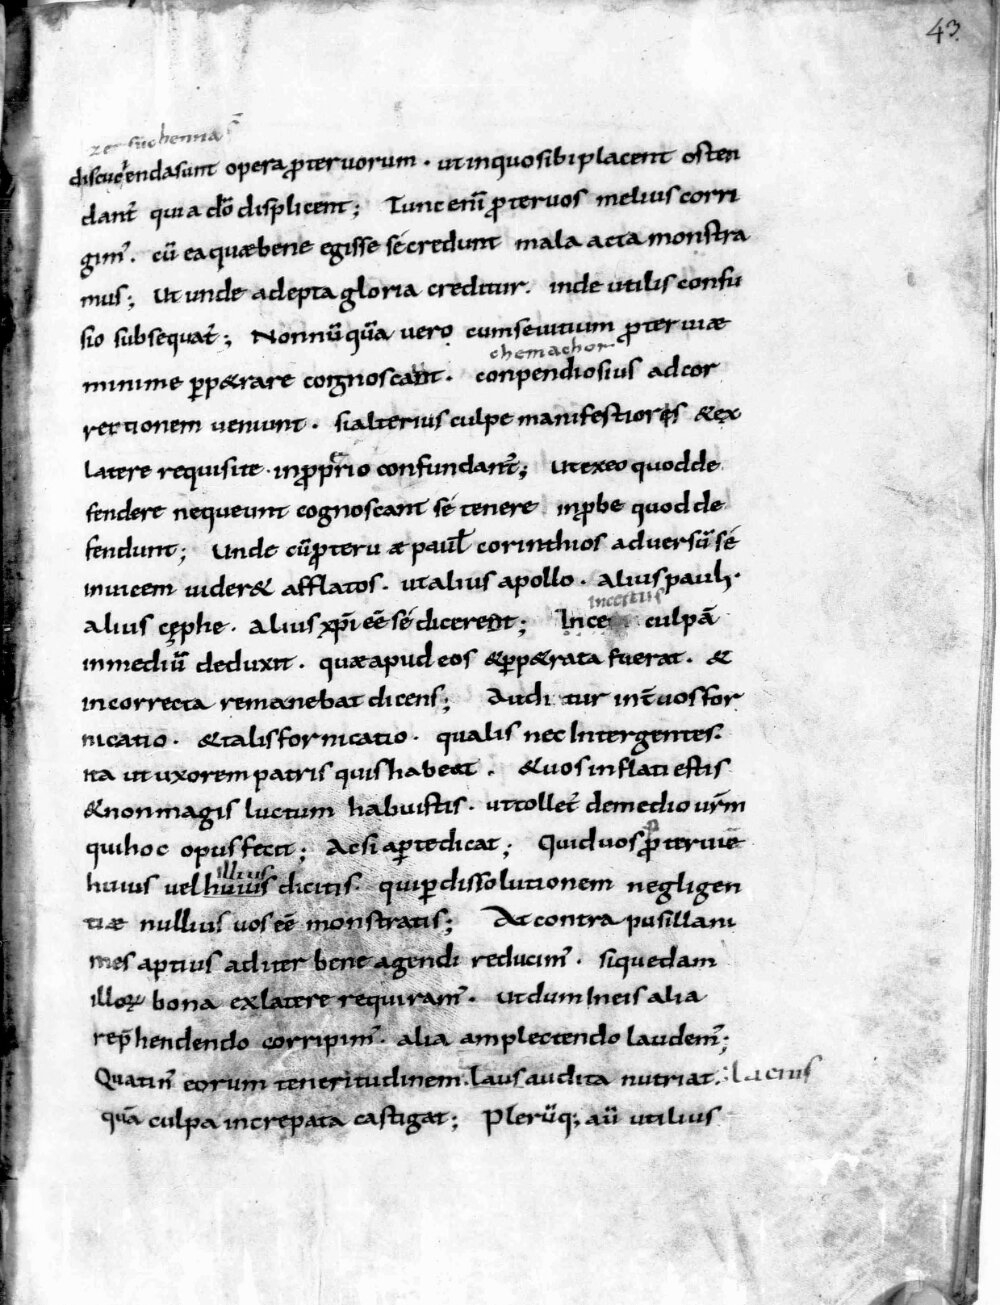 43
zersuchenna
discutiendasunt opera ꝓteruorum · ut inquo sibi placent osten
dant̄ quia dō displicent; Tunc eni᷒ ꝓteruos melius corri
gim᷒. cū ea quæ bene egisse sé credunt mala acta monstra
mus; Ut unde adepta gloria creditur. inde utilis confu
sio subsequat̄; Nonnūquā vero cum se uitium ꝓteruiæ
chemachor
minime ꝑp&rare cognoscant. conpendiosius ad cor
rectionem veniunt. si alterius culpe manifestiores &ex
latere requisite. inꝓprio confundant̄; Ut exeo quod de
fendere nequeunt cognoscant sé tenere inꝓbe quod de
fendunt; Unde cū ꝓteruæ paul̄ corinthios adversū sé
inuicem uider& afflatos. ut alius apollo. alius pauli.
incestus
alius cęphe. alius xp̄i eē sé dicerent; Ince culpā
inmediū deduxit. quæ apud eos &ꝑp&rata fuerat. &
incorrecta remanebat dicens; Auditur int̄ uos for
nicatio. &talis fornicatio. qualis nec Inter gentes.
ita ut uxorem patris quis habeat. &uos inflati estis
&non magis luctum habuistis. ut tollet̄ de medio ur̄m
qui hoc opus fecit; Acsi aꝑte dicat; Quid uos ꝓteruiē
illius
huius vel huius dicitis. qui ꝑ dissolutionem negligen
tiæ nullius uos eē monstratis; At contra pusillani
mes aptius ad iter bene agendi reducim᷒. si quedam
illoꝝ bona exlatere requiram᷒. Ut dum In eis alia
rep̄hendendo corripim᷒. alia amplectendo laudem᷒;
Quatin᷒ eorum teneritudinem. laus audita nutriat. : lacius
quā culpa increpata castigat; Plerūq; aū utilius